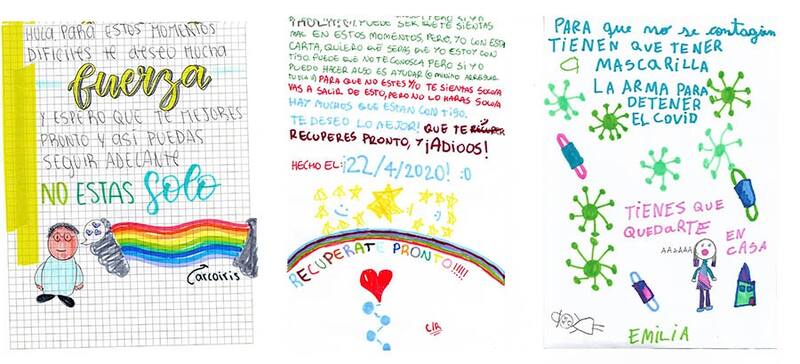 HOLA PARA ESTOS MOMENTOS
DIFICILES TE DESEO MUCHA
fuerza
Y ESPERO QUE TE MEJORES
PRONTO Y ASÍ PUEDAS
SEGUIR ADELANTE
NO ESTAS Solo
arcoiris
PUEDE SER QUE TE SIENTAS
MAL EN ESTOS MOMENTOS PERO, YO CON ESTA
CARTA, QUIERO QUE SEPAS QUE YO ESTOY CON
TIGO. PUEDE QUE NO TE CONOSCA PERO SI YO
PUEDO HACER ALGO ES AYUDAR (O MINIMO ARREGLAR
TU DIA :)) PARA QUE NO ESTES Y/O TE SIENTAS SOLO/A
VAS A SALIR DE ESTO, PERO NO LO HARAS SOLO/A
HAY MUCHOS QUE ESTAN CONTIGO.
TE DESEO LO MEJOR! QUE TE
RECUPERES PRONTO, Y ¡ADIOOS!
HECHO EL: ¡22/4/2020! :O
RECUPERATE PRONTO!!!!!
PARA que no se contagien
TIENEN QUE TENER
MASCARILLA
LA ARMA PARA
DETENER
EL COVID
TIENES QUE
QUEDARTE EN
CASA
AAAAAA
EMILIA